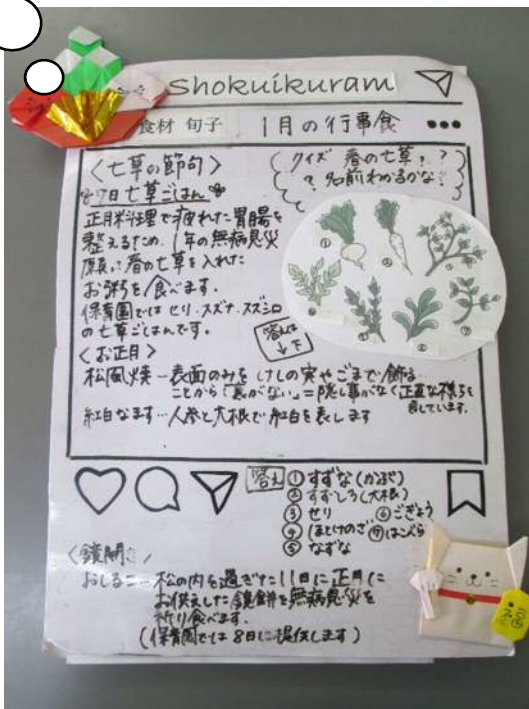 shokuikuram
食材 旬子 1月の行事食
<七草の節句>
7日七草ごはん
正月料理で疲れた胃腸を
整えるため、1年の無病息災
願って春の七草を入れた
お粥を食べます。
保育園では せり、スズナ、スズシロ
の七草ごはんです。
クイズ 春の七草!
? 名前わかるかな?
① ② ③ ④ ⑤ ⑥ ⑦
答えは
↓下
<お正月>
松風焼…表面のみを けしの実やごまで飾る
ことから「裏がない」=隠し事がなく正直な様子を
表しています。
紅白なます…人参と大根で紅白を表します
答え ①すずな(かぶ)
②すずしろ(大根)
③せり ⑥ごぎょう
④ほとけのざ ⑦はこべら
⑤なずな
<鏡開き>
おしるこ…松の内を過ぎた11日に正月に
お供えした鏡餅を無病息災を
祈り食べます。
(保育園では8日に提供します)
福